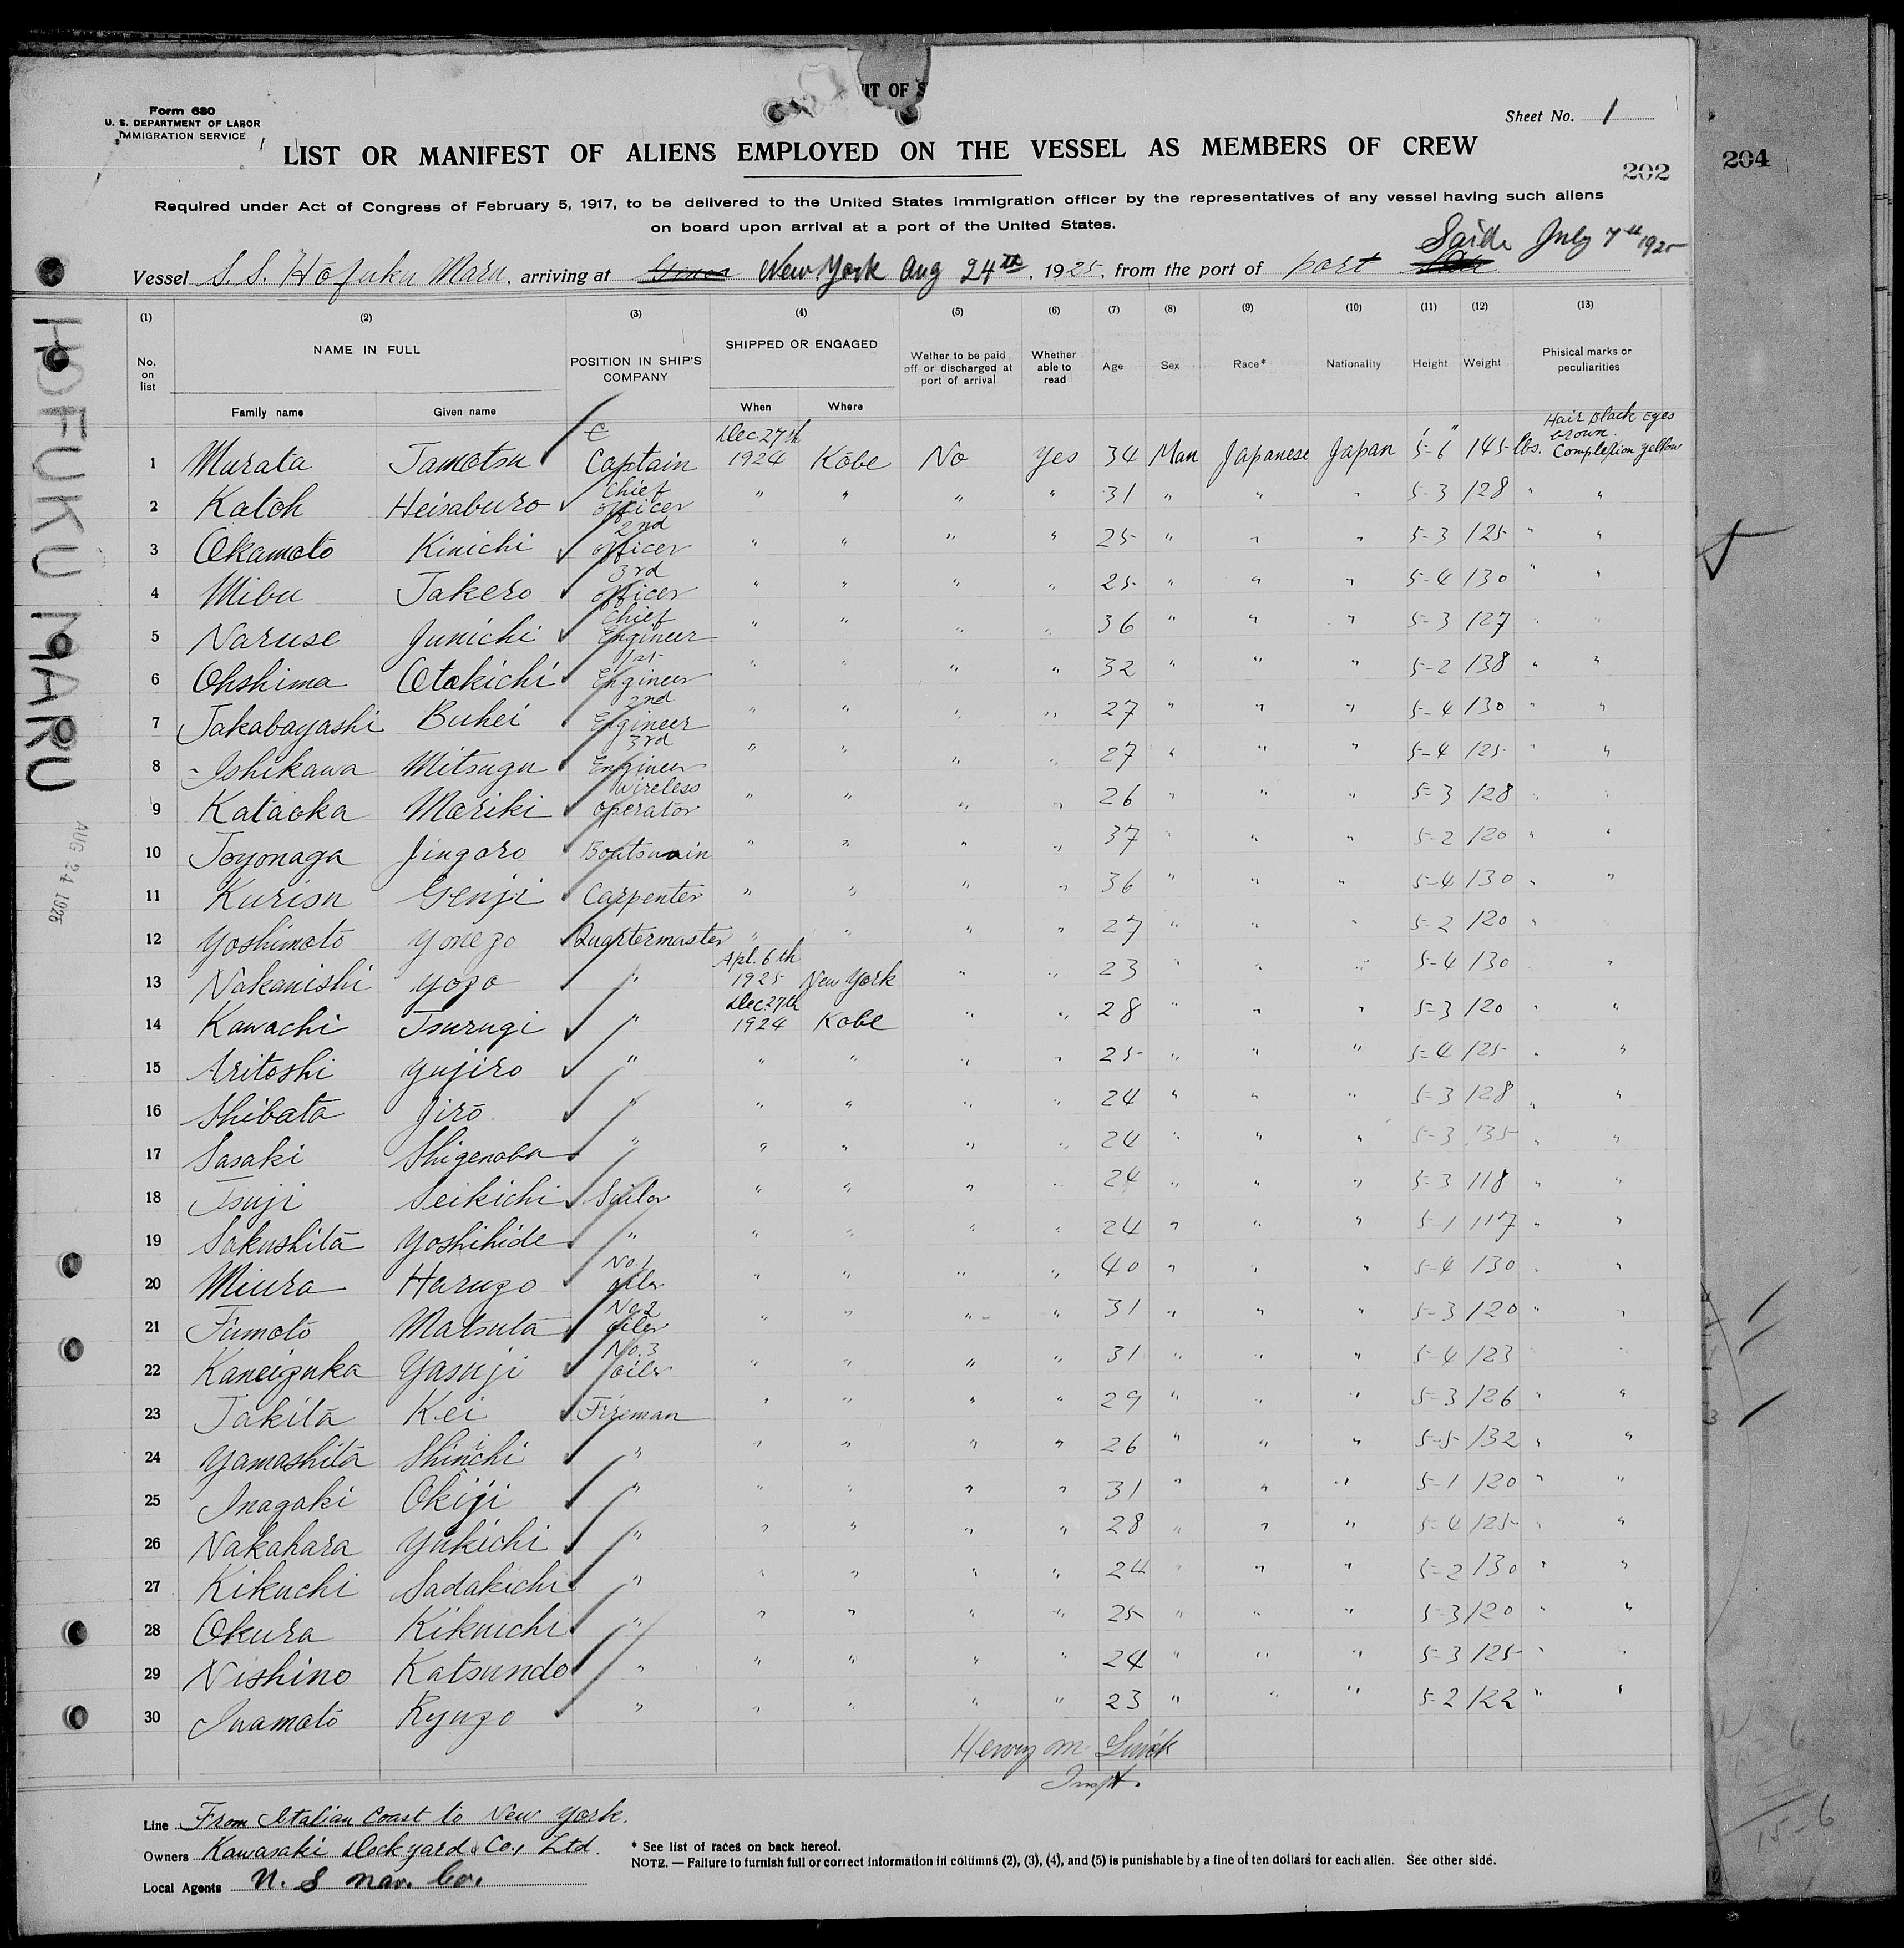 IT OF S
Form 680
U. S. DEPARTMENT OF LABOR
IMMIGRATION SERVICE
Sheet No. 1
LIST OR MANIFEST OF ALIENS EMPLOYED ON THE VESSEL AS MEMBERS OF CREW
202
204
Required under Act of Congress of February 5, 1917, to be delivered to the United States Immigration officer by the representatives of any vessel having such aliens
on board upon arrival at a port of the United States.
Saide July 7th 1925
Vessel S.S. Hōfuku Maru, arriving at New York Aug 24th, 1925, from the port of port
HOFUKU MARU
AUG 24 1925
(1) (2) (3) (4) (5) (6) (7) (8) (9) (10) (11) (12) (13)
No. on list NAME IN FULL POSITION IN SHIP'S COMPANY SHIPPED OR ENGAGED Wether to be paid off or discharged at port of arrival Whether able to read Age Sex Race* Nationality Height Weight Phisical marks or peculiarities
Family name Given name When Where
1 Murata Tamotsu Captain Dec. 27th 1924 Kobe No Yes 34 Man Japanese Japan 5'-6" 145 lbs. Hair Black Eyes brown. Complexion yellow
2 Katoh Heisaburo Chief officer " " " " 31 " " " 5-3 128 " "
3 Okamoto Kinichi 2nd officer " " " " 25 " " " 5-3 125 " "
4 Mibu Takero 3rd officer " " " " 25 " " " 5-4 130 " "
5 Naruse Junichi Chief Engineer " " " " 36 " " " 5-3 127 " "
6 Ohshima Otokichi 1st Engineer " " " " 32 " " " 5-2 138 " "
7 Takabayashi Buhei 2nd Engineer " " " " 27 " " " 5-4 130 " "
8 Ishikawa Mitsugu 3rd Engineer " " " " 27 " " " 5-4 125 " "
9 Kataoka Moriki Wireless operator " " " " 26 " " " 5-3 128 " "
10 Toyonaga Jingoro Boatswain " " " " 37 " " " 5-2 120 " "
11 Kurisu Genji Carpenter " " " " 36 " " " 5-4 130 " "
12 Yoshimoto Yonezo Quartermaster " " " " 27 " " " 5-2 120 "
13 Nakanishi Yozo " Apl. 6th 1925 New York " " 23 " " " 5-4 130 "
14 Kawachi Tsurugi " Dec. 27th 1924 Kobe " " 28 " " " 5-3 120 " "
15 Aritoshi Yujiro " " " " " 25 " " " 5-4 125 " "
16 Shibata Jirō " " " " " 24 " " " 5-3 128 " "
17 Sasaki Shigenobu " " " " " 24 " " " 5-3 135 " "
18 Tsuji Seikichi Sailor " " " " 24 " " " 5-3 118 " "
19 Sakushita Yoshihide " " " " " 24 " " " 5-1 117 " "
20 Miura Haruzo No.1 oiler " " " " 40 " " " 5-4 130 " "
21 Fumoto Matsuta No.2 oiler " " " " 31 " " " 5-3 120 " "
22 Kaneizuka Yasuji No.3 oiler " " " " 31 " " " 5-4 123
23 Takita Kei Fireman " " " " 29 " " " 5-3 126 " "
24 Yamashita Shinichi " " " " " 26 " " " 5-5 132 " "
25 Inagaki Okiji " " " " " 31 " " " 5-1 120 " "
26 Nakahara Yukichi " " " " " 28 " " " 5-4 125 " "
27 Kikuchi Sadakichi " " " " " 24 " " " 5-2 130 " "
28 Okura Kikuichi " " " " " 25 " " " 5-3 120 " "
29 Nishino Katsundo " " " " " 24 " " " 5-3 125 " "
30 Iwamoto Ryuzo " " " " " 23 " " " 5-2 122 " "
Henry M
Inspt.
Line From Italian Coast to New York.
Owners Kawasaki Dockyard & Co., Ltd.
Local Agents N. S Nav. Co.
* See list of races on back hereof.
NOTE. — Failure to furnish full or correct information in columns (2), (3), (4), and (5) is punishable by a fine of ten dollars for each alien. See other side.
6
15-6